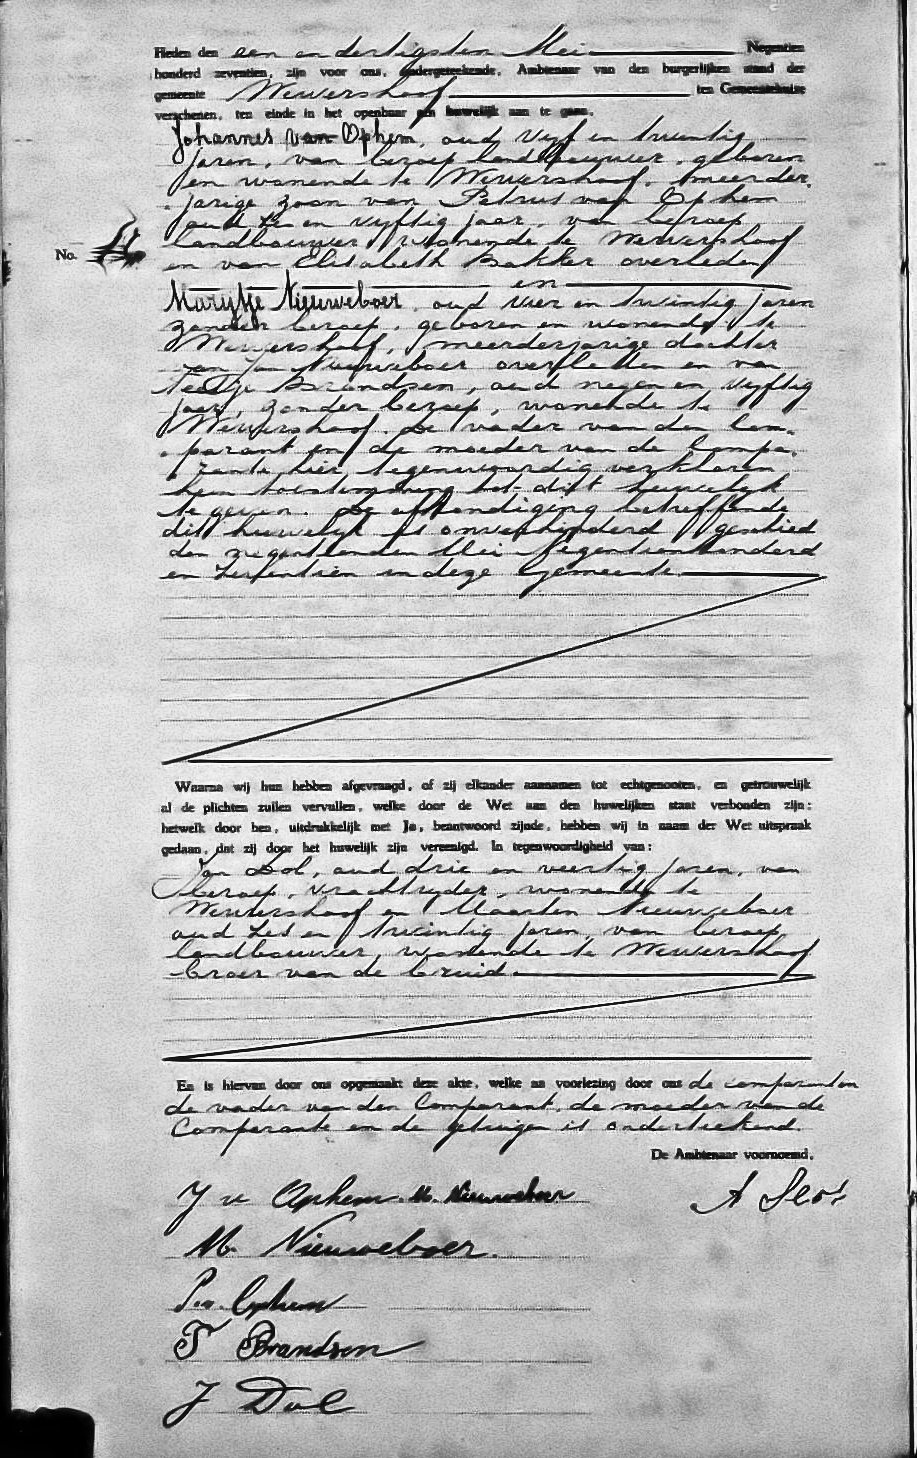 Heden den een en dertigsten Mei Negentien
honderd zeventien, zijn voor ons, ondergeteekende, Ambtenaar van den burgerlijken stand der
gemeente Wervershoof ten Gemeentehuize
verschenen, ten einde in het openbaar een huwelijk aan te gaan,
Johannes van Ophem, oud vijf en twintig
jaren, van beroep landbouwer, geboren
en wonende te Wervershoof, meerder-
jarige zoon van Petrus van Ophem
oud zes en vyftig jaar, van beroep
landbouwer, wonende te Wervershoof
No.
en van Elisabeth Bakker overleden
en
Marijtje Nieuweboer, oud vier en twintig jaren
zonder beroep, geboren en wonende te
Wervershoof, meerderjarige dochter
van Jan Nieuweboer overleden en van
Brandsen, oud negen en vyftig
jaar, zonder beroep, wonende te
Wervershoof. De vader van den Com-
parant en de moeder van de Compa-
rante hier tegenwoordig verklaren
hun toestemming tot dit huwelyk
te geven. De afkondiging betreffende
dit huwelyk is onverhinderd geschied
den negentienden Mei Negentienhonderd
en zeventien in deze gemeente.
Waarna wij hun hebben afgevraagd, of zij elkander aannamen tot echtgenooten, en getrouwelijk
al de plichten zullen vervullen, welke door de Wet aan den huwelijken staat verbonden zijn;
hetwelk door hen, uitdrukkelijk met Ja, beantwoord zijnde, hebben wij in naam der Wet uitspraak
gedaan, dat zij door het huwelijk zijn vereenigd. In tegenwoordigheid van:
Jan Dol, oud drie en veertig jaren, van
beroep, vrachtryder, wonende te
Wervershoof en Maarten Nieuweboer
oud zes en twintig jaren, van beroep
landbouwer, wonende te Wervershoof
broer van de bruid.
En is hiervan door ons opgemaakt deze akte, welke na voorlezing door ons de comparanten
de vader van den Comparant, de moeder van de
Comparante en de getuigen is onderteekend.
De Ambtenaar voornoemd,
J v Ophem. M. Nieuweboer
A
M. Nieuweboer.
P. v. Ophem
T Brandsen
J Dol